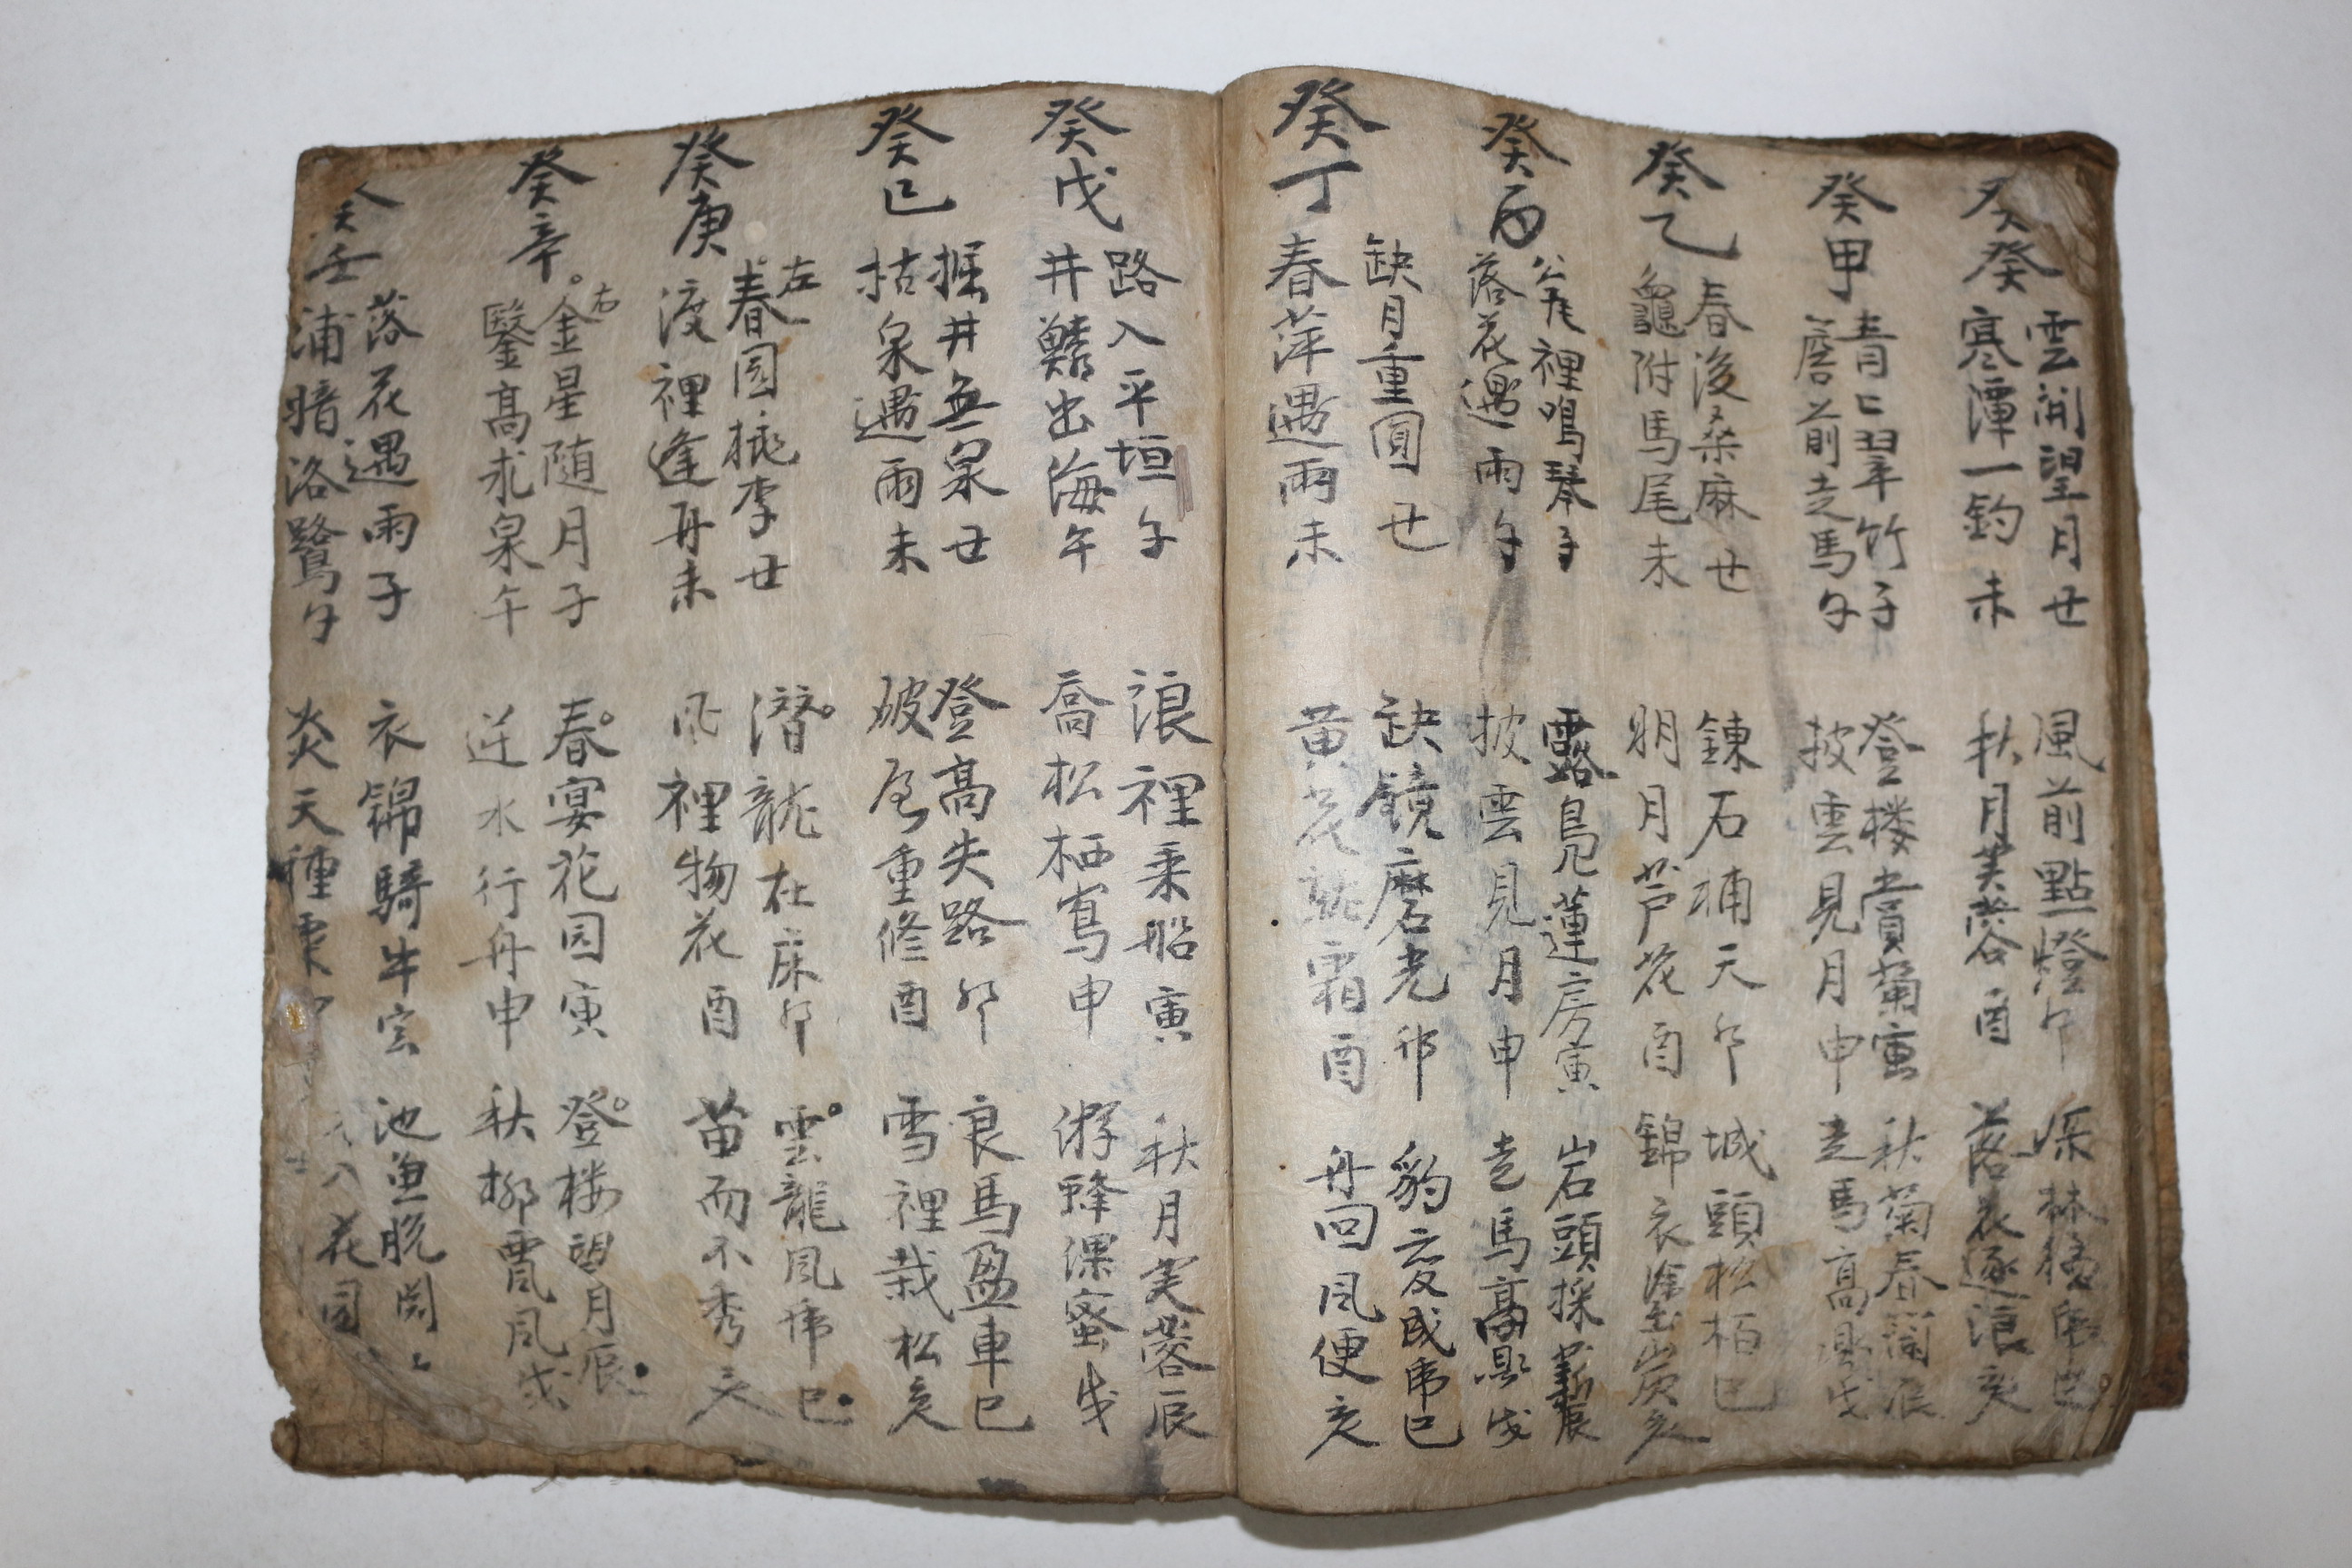 癸癸
雲開望月丑 風前點燈卯 深林
寒潭一釣未 秋月芙蓉酉 落花逐浪亥
癸甲
青山翠竹子 登楼賞菊寅 秋菊春蘭辰
居前走馬午 披雲見月申 走馬高 戌
癸乙
春後桑麻丑 鍊石補天卯 城頭松栢巳
龜附馬尾未 明月芦花酉 錦衣 亥
癸丙
裡鳴琴子 露鳥 蓮房寅 岩頭採薪辰
落花遇雨午 披雲見月申 走馬高 戌
癸丁
缺月重圓丑 缺鏡磨光卯 豹变成席巳
春萍遇雨未 黄花 霜酉 舟回風便亥
癸戊
路入平垣子 浪裡乘船寅 秋月芙蓉辰
井 出海午 喬松栖 申 游蜂 蜜戌
癸己
掘井無泉丑 登高失路卯 良馬盈車巳
枯泉遇雨未 破屋重修酉 雪裡栽松亥
癸庚
左
春园桃李丑 潛龍在床卯 雲龍風席巳
渡裡逢舟未 风裡物花酉 苗而不秀亥
癸辛
右
金星随月子 春宴花园寅 登楼望月辰
鑿高求泉午 逆水行舟申 秋柳 風戌
癸壬
落花遇雨子 衣錦騎牛寅 池魚脫
浦暗洛鷺午 炎天種粟 入花園